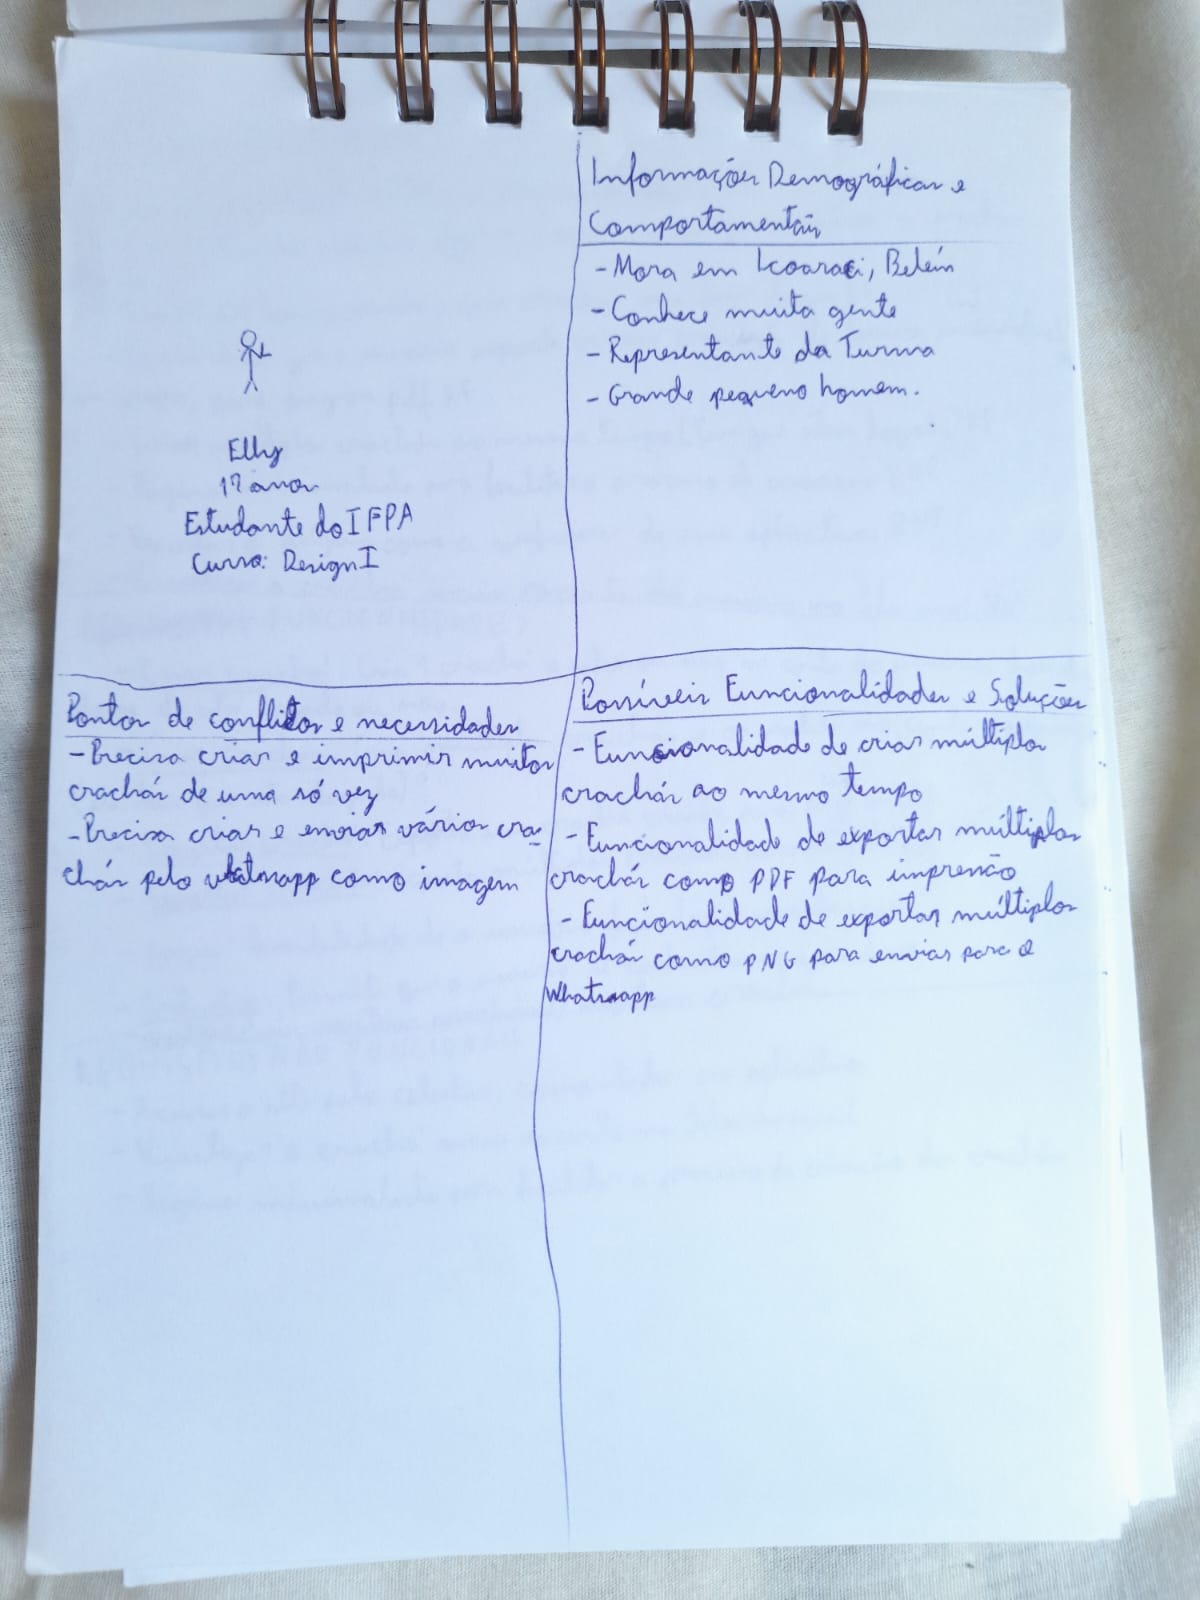 Elly
17 anos
Estudante do IFPA
Curso: Design I
Informações Demográficas e
Comportamentais
- Mora em Icoaraci, Belém
- Conhece muita gente
- Representante da Turma
- Grande pequeno homem.
Pontos de conflitos e necessidades
- Precisa criar e imprimir muitos
crachás de uma só vez
- Precisa criar e enviar vários cra-
chás pelo whatsapp como imagem
Possíveis Funcionalidades e Soluções
- Funcionalidade de criar múltiplos
crachás ao mesmo tempo
- Funcionalidade de exportar múltiplos
crachás como PDF para impressão
- Funcionalidade de exportar múltiplos
crachás como PNG para enviar para o
Whatsapp